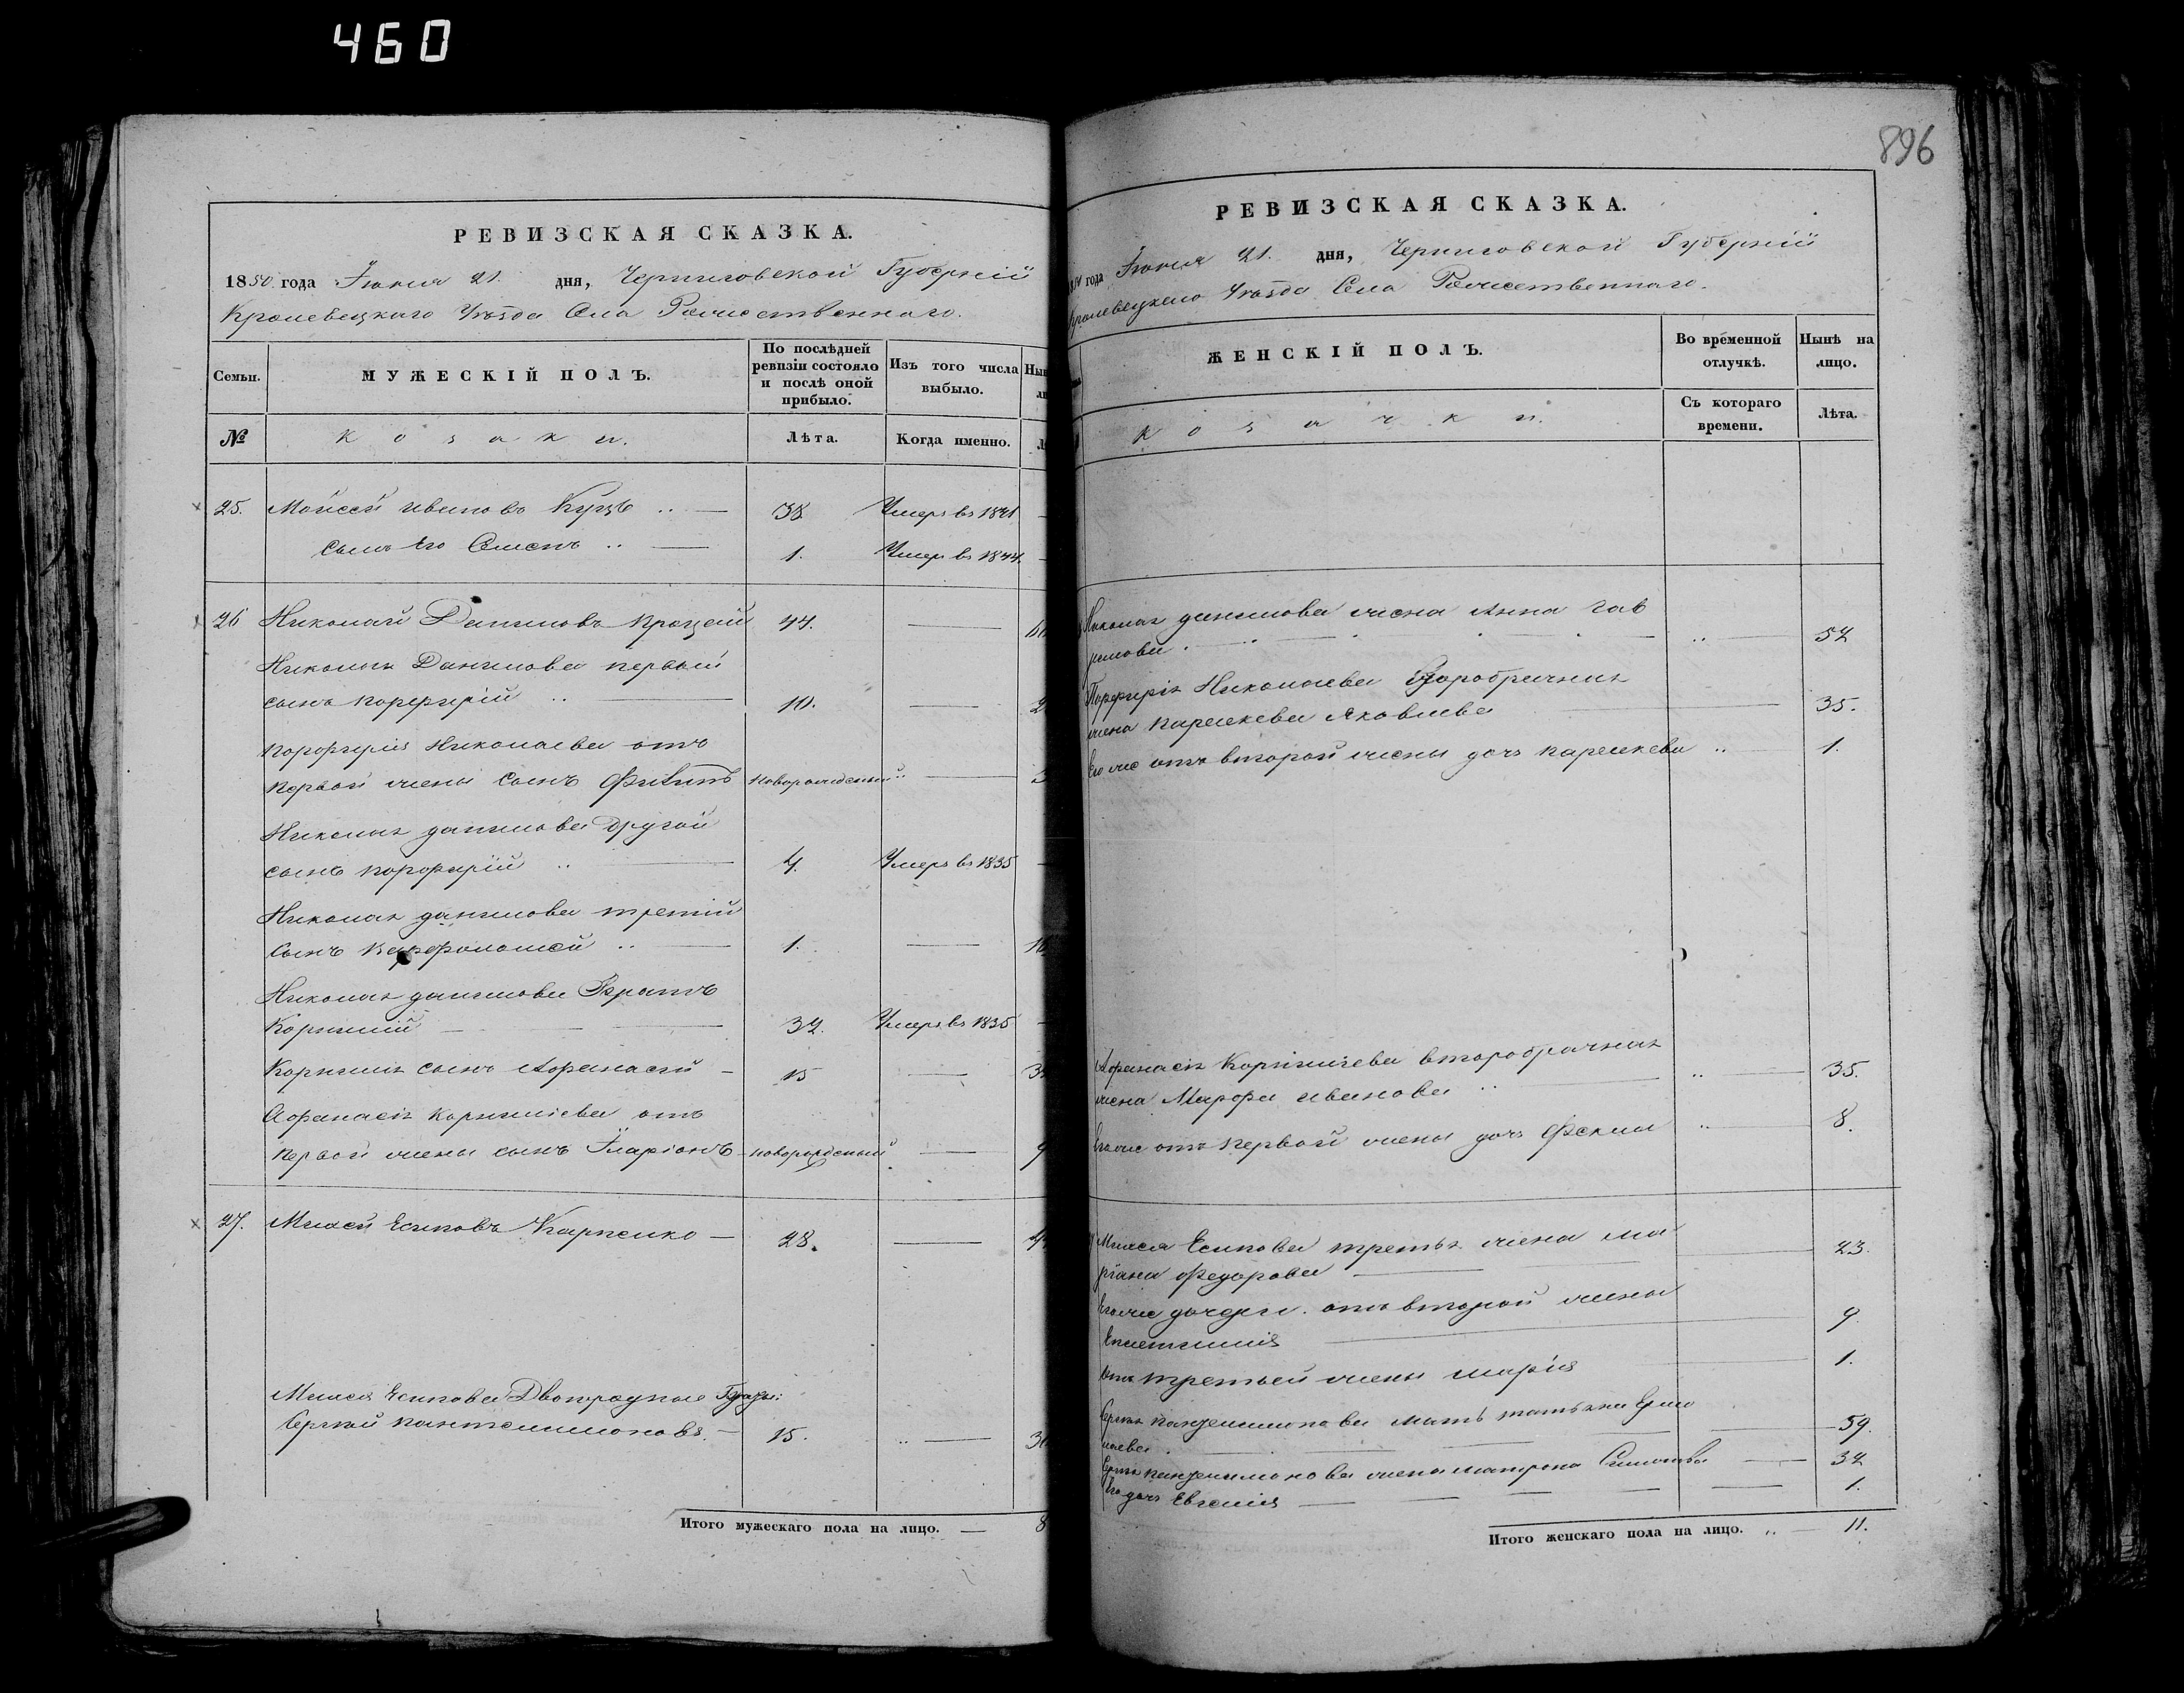 460
896
РЕВИЗСКАЯ СКАЗКА.
1850 года Іюня 21. дня, Черниговской Губерніи
Кролевецкаго Уѣзда Села Рожественнаго.
Семьи.
МУЖЕСКІЙ ПОЛЪ.
По послѣдней ревизіи состояло и послѣ оной прибыло.
Изъ того числа выбыло.
№
Козаки.
Лѣта.
Когда именно.
25. Мойсей Ивановъ Куцъ .. — 38 Умеръ въ 1841 —
Сынъ Его Семенъ .. — 1. Умеръ въ 1844. —
26 Николай Даниловъ 44. —
Николая Данилова первый
сынъ Порфирій .. — 10. —
Порфирія Николаева отъ
первой жены сынъ Филипъ новорожденный .. —
Николая Данилова другой
сынъ Порфирій .. — 4. Умеръ въ 1835 —
Николая Данилова третій
сынъ Варфоломей .. — 1. —
Николая Данилова братъ
Корнилій — 32. Умеръ въ 1835 —
Корнилія сынъ Афанасій — 15 —
Афанасія Корниліева отъ
первой жены сынъ Іларіонъ — новорожденный — 9
27. Мусій Есиповъ Карпенко — 28. —
Есипова Двоюродные братья:
Сергѣй Пантелимоновъ. — 15. .. —
Итого мужескаго пола на лицо. — 8
РЕВИЗСКАЯ СКАЗКА.
года Іюня 21. дня, Черниговской Губерніи
Кролевецкаго Уѣзда Села Рожественнаго.
ЖЕНСКІЙ ПОЛЪ.
Во временной отлучкѣ.
Нынѣ на лицо.
Козачки.
Съ котораго времени.
Лѣта.
Николая Данилова жена Анна Гав
рилова . — .. — 52
Порфирія Николаева второбрачная
жена Параскева Яковлева — 35.
Его же отъ второй жены дочь Параскева .. — 1.
Афанасія Корниліева второбрачная
жена Марфа Иванова .. — 35.
Его же отъ первой жены дочь Фекла .. — 8.
Есипова третья жена Ма
ріана Федорова — 23.
Его же дочери. отъ второй жены
— 9.
отъ третьей жены Марія — 1.
Сергѣя Пантелимонова мать Татьяна Ермо
лаева . — 59.
Сергѣя Пантелимонова жена Матрона — 32
Его дочь Евгенія — 1.
Итого женскаго пола на лицо. .. — 11.